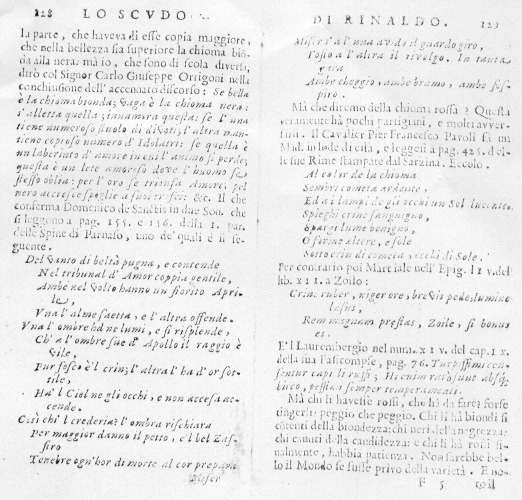 128 LO SCVDO
la parte, che haveva di esse copia maggiore,
che nella bellezza sia superiore la chioma bion-
da alla nera: mà io, che sono di scola diversa,
dirò col Signor Carlo Giuseppe Orrigoni nella
conchiusione dell'accennato discorso: Se bella
è la chioma bionda; vaga è la chioma nera:
s'alletta quella; innamira questa: se l'una
tiene numeroso stuolo di divoti, l'altra man-
tiene copioso numero d'Idolatri: se quella è
un laberinto d'amore in cui l'animo si perde;
questa è un lete amoroso dove l'huomo se
stesso oblia: per l'oro se trionfa Amore; pel
nero accresce spoglie a suoi trofei: &c. Il che
conferma Domenico de Santis in due Son. che
si leggono a pag. 155. e 156. della 1. par.
delle Spine di Parnaso, uno de' quali è il se-
guente.
Del vanto di beltà pugna, e contende
Nel tribunal d'Amor coppia gentile,
Ambe nel volto hanno un fiorito Apri-
le,
Vna l'alme saetta, e l'altra offende.
Vna l'ombre hà ne lumi, e si risplende,
Ch'a l'ombre sue d'Apollo il raggio è
vile,
Pur fosco è l'crin; l'altra l'hà d'or sot-
tile,
Hà'l Ciel ne gli occhi, e non accesa ac-
cende.
Così chi'l crederia? l'ombra rischiara
Per maggior danno il petto, e'l bel Zaf-
firo
Tenebre ogn'hor di morte al cor prepara
Miser
DI RINALDO. 129
Miser s'a l'una avido il guardo giro,
Tosto a l'altra il rivolgo. In tanta
gara
Ambe cheggio, ambe bramo, ambo sos-
piro.
Mà che diremo della chioma rossa? Questa
veramente hà pochi partigiani, e molti avver-
sari. Il Cavalier Pier Francesco Pavoli fà un
Mad. in lode di essa, e leggesi a pag. 425. del-
le sue Rime stampate dal Sarzina. Eccolo.
Al color de la chioma
Sembri cometa ardente,
Ed a i lampi de gli occhi un Sol lucente.
Spieghi crine sanguigno,
Spargi lume benigno,
O forme altere, e sole
Sotto crin di cometa, occhi di Sole.
Per contrario poi Martiale nell'Epig. LIV. del
lib. XII. a Zoilo:
Crine ruber, niger ore, brevis pede, lumine
lesus,
Rem magnam prestas, Zoile, si bonus
es.
E'l Laurembergio nel num. XIV. del cap. IX.
della sua Pasicompse, pag. 76. Turpissimi cen-
sentur capilli russi; Hi enim rarò sunt absq;
lue, pessima semper temperamenti.
Mà chi li havesse rossi, che hà da fare? forse
tingerli? peggio che peggio. Chi li hà biondi si
contenti della biondezza: chi neri dela negrezza:
chi canuti della candidezza: e chi li hà rossi fi-
nalmente, habbia patienza. Non sarebbe bel-
lo il Mondo se fusse privo della varietà. E non
F 5 soll